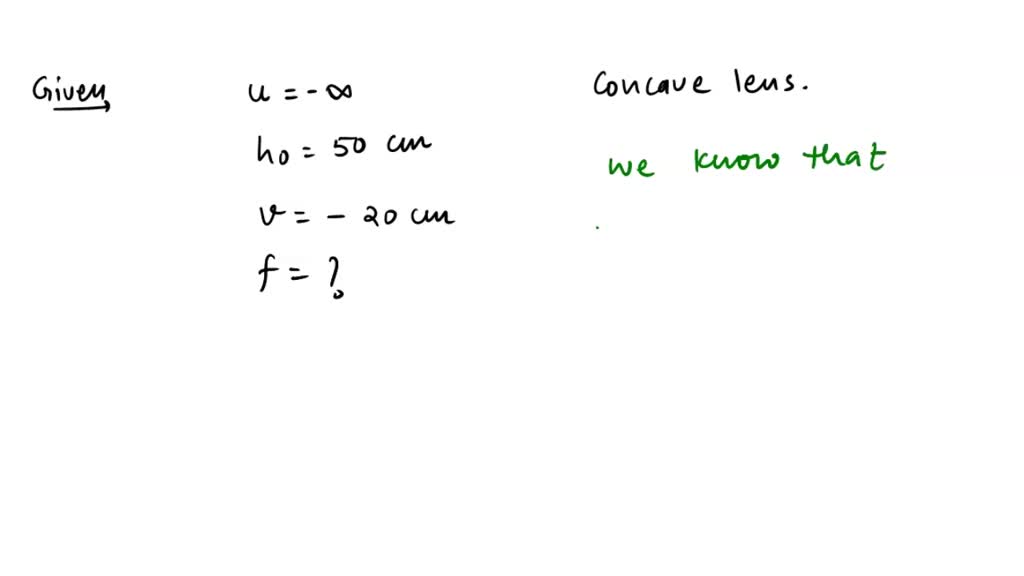 Given
u = - ∞
h0 = 50 cm
v = - 20 cm
f = ?
Concave lens.
we know that